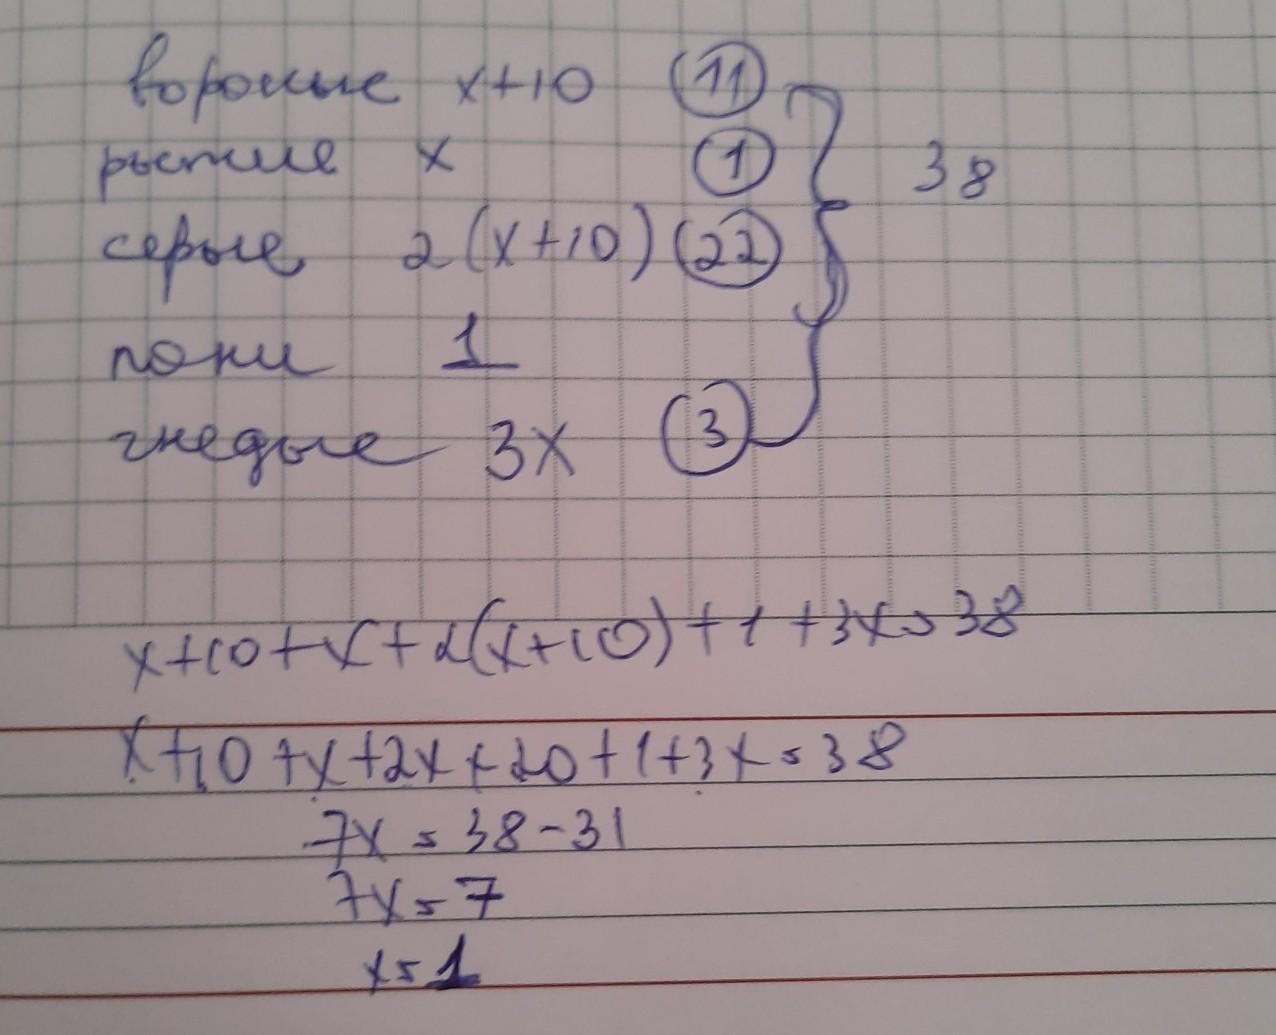 вороные x+10 (11)
рыжие x (1) 38
серые 2(x+10) (22)
пони 1
гнедые 3x (3)
x+10+x+2(x+10)+1+3x=38
x+10+x+2x+20+1+3x=38
7x=38-31
7x=7
x=1